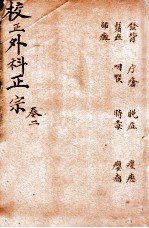 發背 疔瘡 脫疽 瘰癧
鬢疽 咽喉 時毒 癭瘤
肺癰
卷二
校正外科正宗